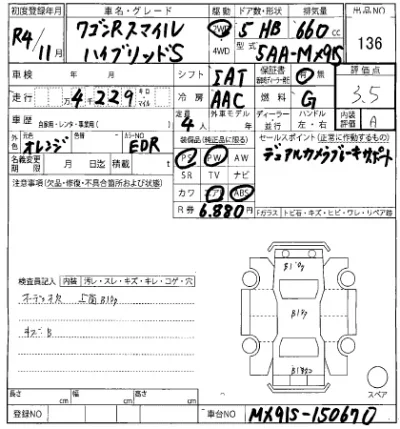 初度登録年月 車名・グレード 駆動 ドア数・形状 排気量 出品NO
R4/11月 ワゴンRスマイル ハイブリッドS 2WD 4WD 5 HB 660cc 136
型式 5AA-MX91S
車検 年 月 シフト IAT 保証書 有 無 評価点
走行 4万 4千 229 キロ マイル 冷房 AAC 燃料 G 3.5
車歴 自家用・レンタ・事業用( ) 定員 4人 外車モデル 年 ディーラー 並行 ハンドル 左・右 内装評価 A
外色 元色 オレンジ 色替 カラーNO EDR
装備品(純正品に限る) セールスポイント(正常に作動するもの)
名義変更期限 月 日迄 積載 t
PS PW AW デュアルカメラブレーキサポート
SR TV ナビ
注意事項(欠品・修復・不具合箇所および状態)
カワ エアB ABS
R券 6.880円
Fガラス トビ石・キズ・ヒビ・ワレ・リペア跡
検査員記入 内装 汚レ・スレ・キズ・キレ・コゲ・穴
キズB
長さ cm 幅 cm 高さ cm
スペア
登録NO 車台NO MX91S-150670